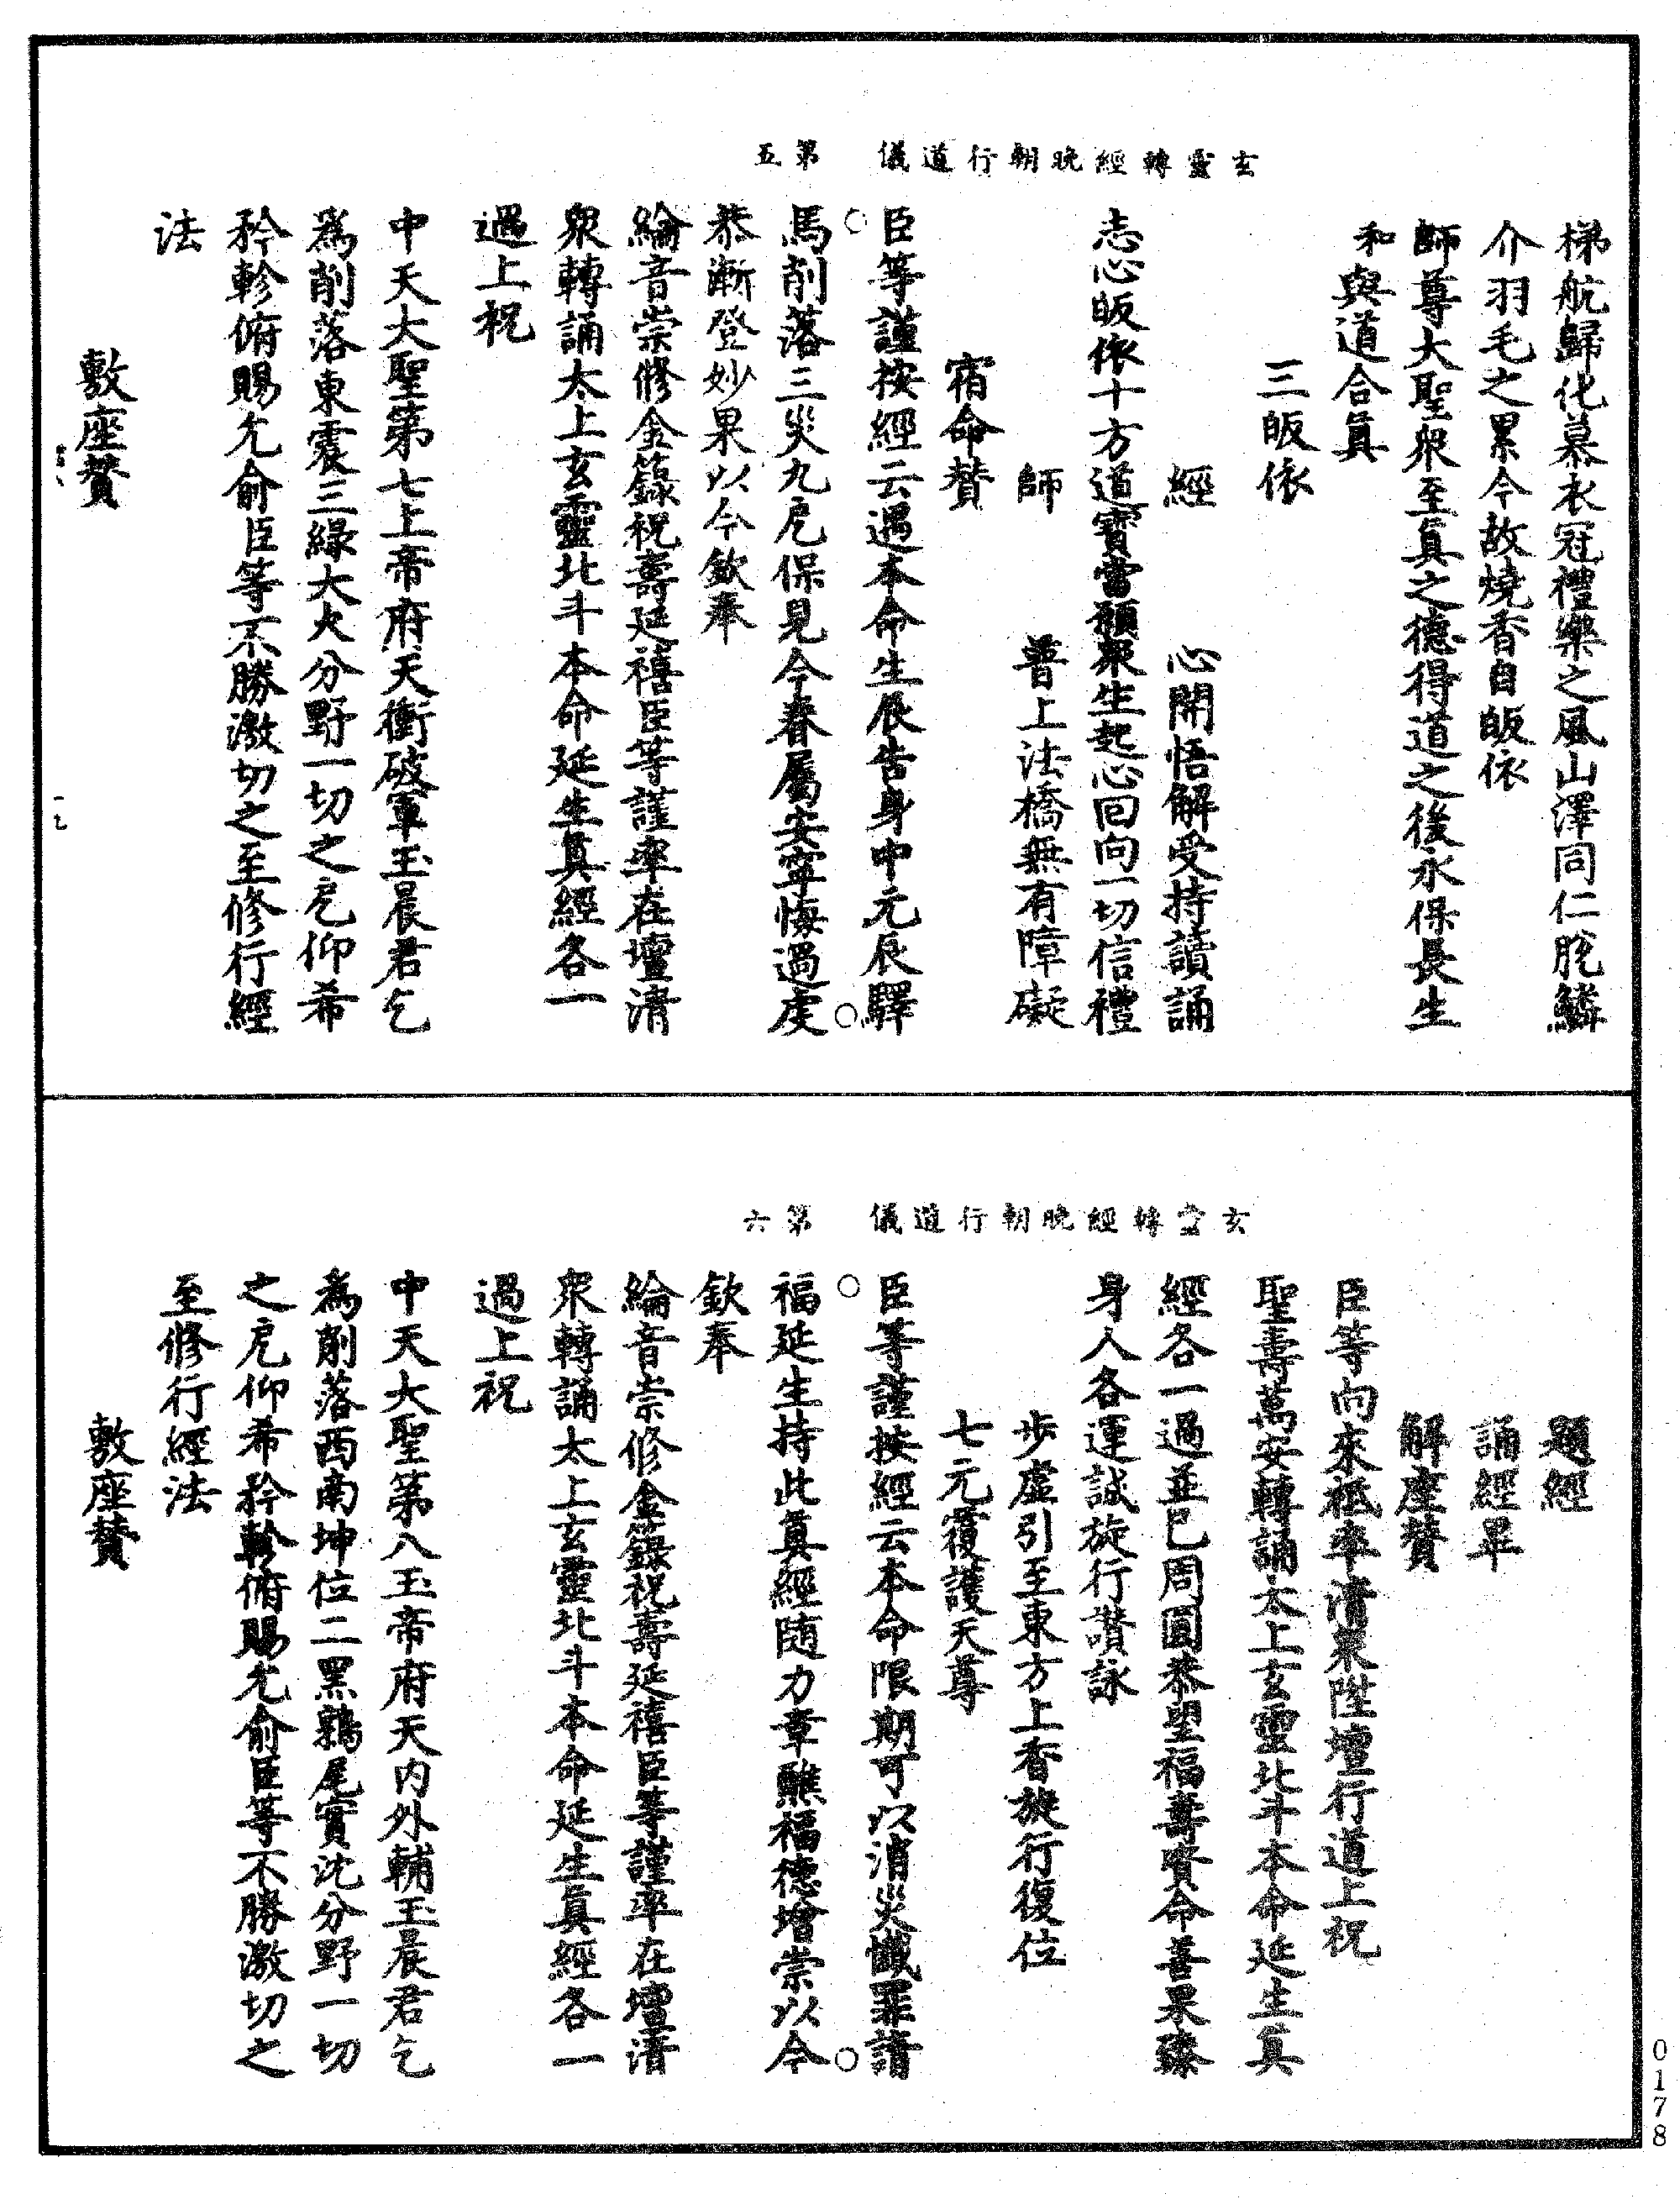 梯航歸化慕衣冠禮樂之風山澤同仁脫鱗
介羽毛之累今故燒香自皈依
師尊大聖眾至真之德得道之後永保長生
和與道合真
三皈依
玄靈轉經晚朝行道儀　第五
經　心開悟解受持讀誦
志心皈依十方道寶當願眾生起心回向一切信禮
師　普上法橋無有障礙
宿命贊
臣等謹按經云遇本命生辰告身中元辰驛
○　○
馬削落三災九厄保見今眷屬安寧悔過虔
恭漸登妙果以今欽奉
綸音崇修金籙祝壽延禧臣等謹率在壇清
眾轉誦太上玄靈北斗本命延生真經各一
過上祝
中天大聖第七上帝府天衝破軍玉晨君乞
為削落東震三綠大火分野一切之厄仰希
矜軫俯賜允俞臣等不勝激切之至修行經
法
敷座贊
一七
題經
誦經畢
解座贊
臣等向來祗率清眾陞壇行道上祝
聖壽萬安轉誦太上玄靈北斗本命延生真
玄靈轉經晚朝行道儀　第六
經各一過並已周圓恭望福壽賚命善果臻
身人各運誠旋行讚詠
步虛引至東方上香旋行復位
七元覆護天尊
臣等謹按經云本命限期可以消災懺罪請
○　○
福延生持此真經隨力章醮福德增崇以今
欽奉
綸音崇修金籙祝壽延禧臣等謹率在壇清
眾轉誦太上玄靈北斗本命延生真經各一
過上祝
中天大聖第八玉帝府天內外輔玉晨君乞
為削落西南坤位二黑鶉尾實沈分野一切
之厄仰希矜軫俯賜允俞臣等不勝激切之
至修行經法
敷座贊
0178